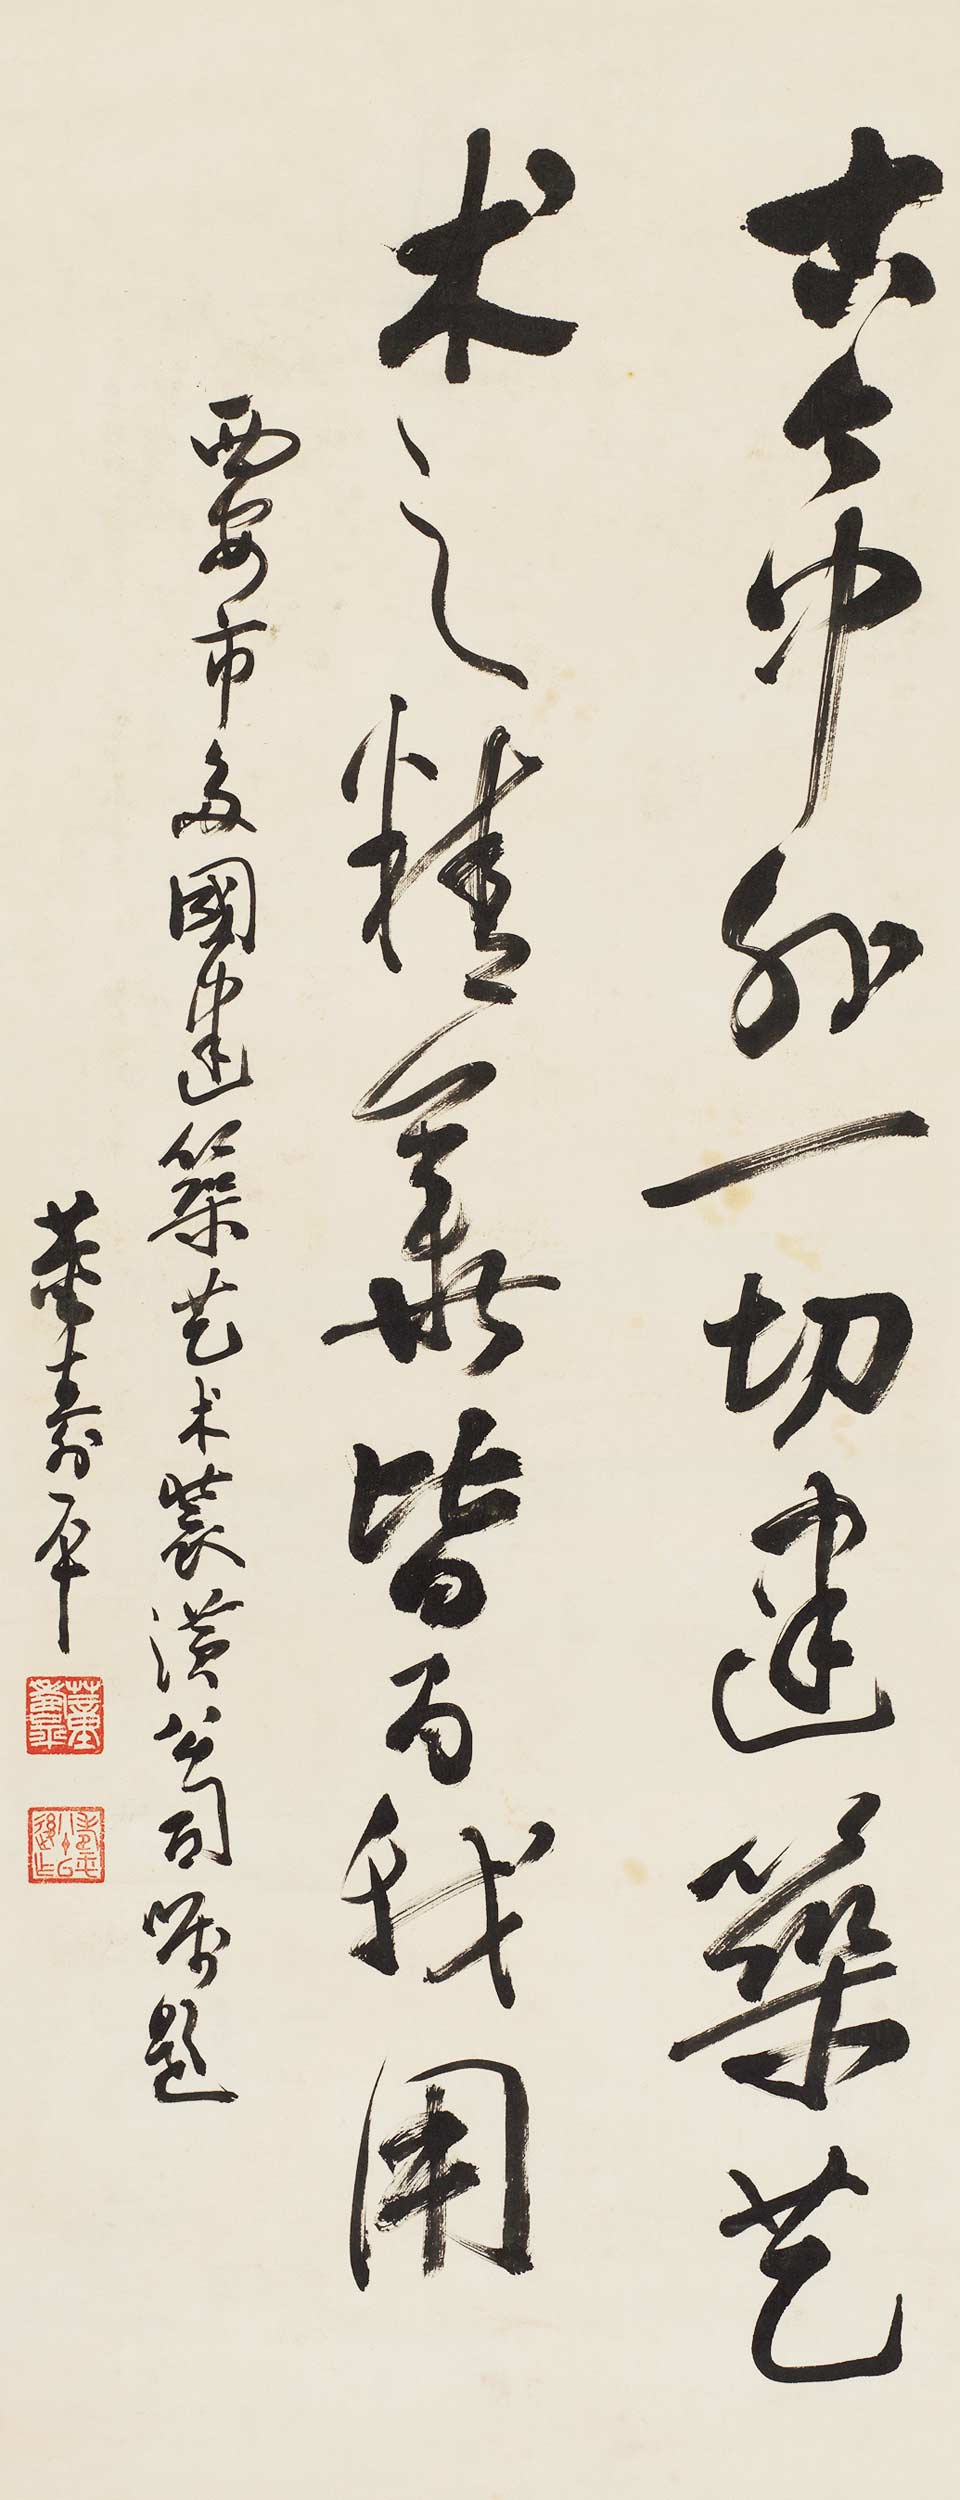 古今中外一切建築艺
术之精華皆为我用
西安市多國建築艺术装潢公司嘱题
董寿平